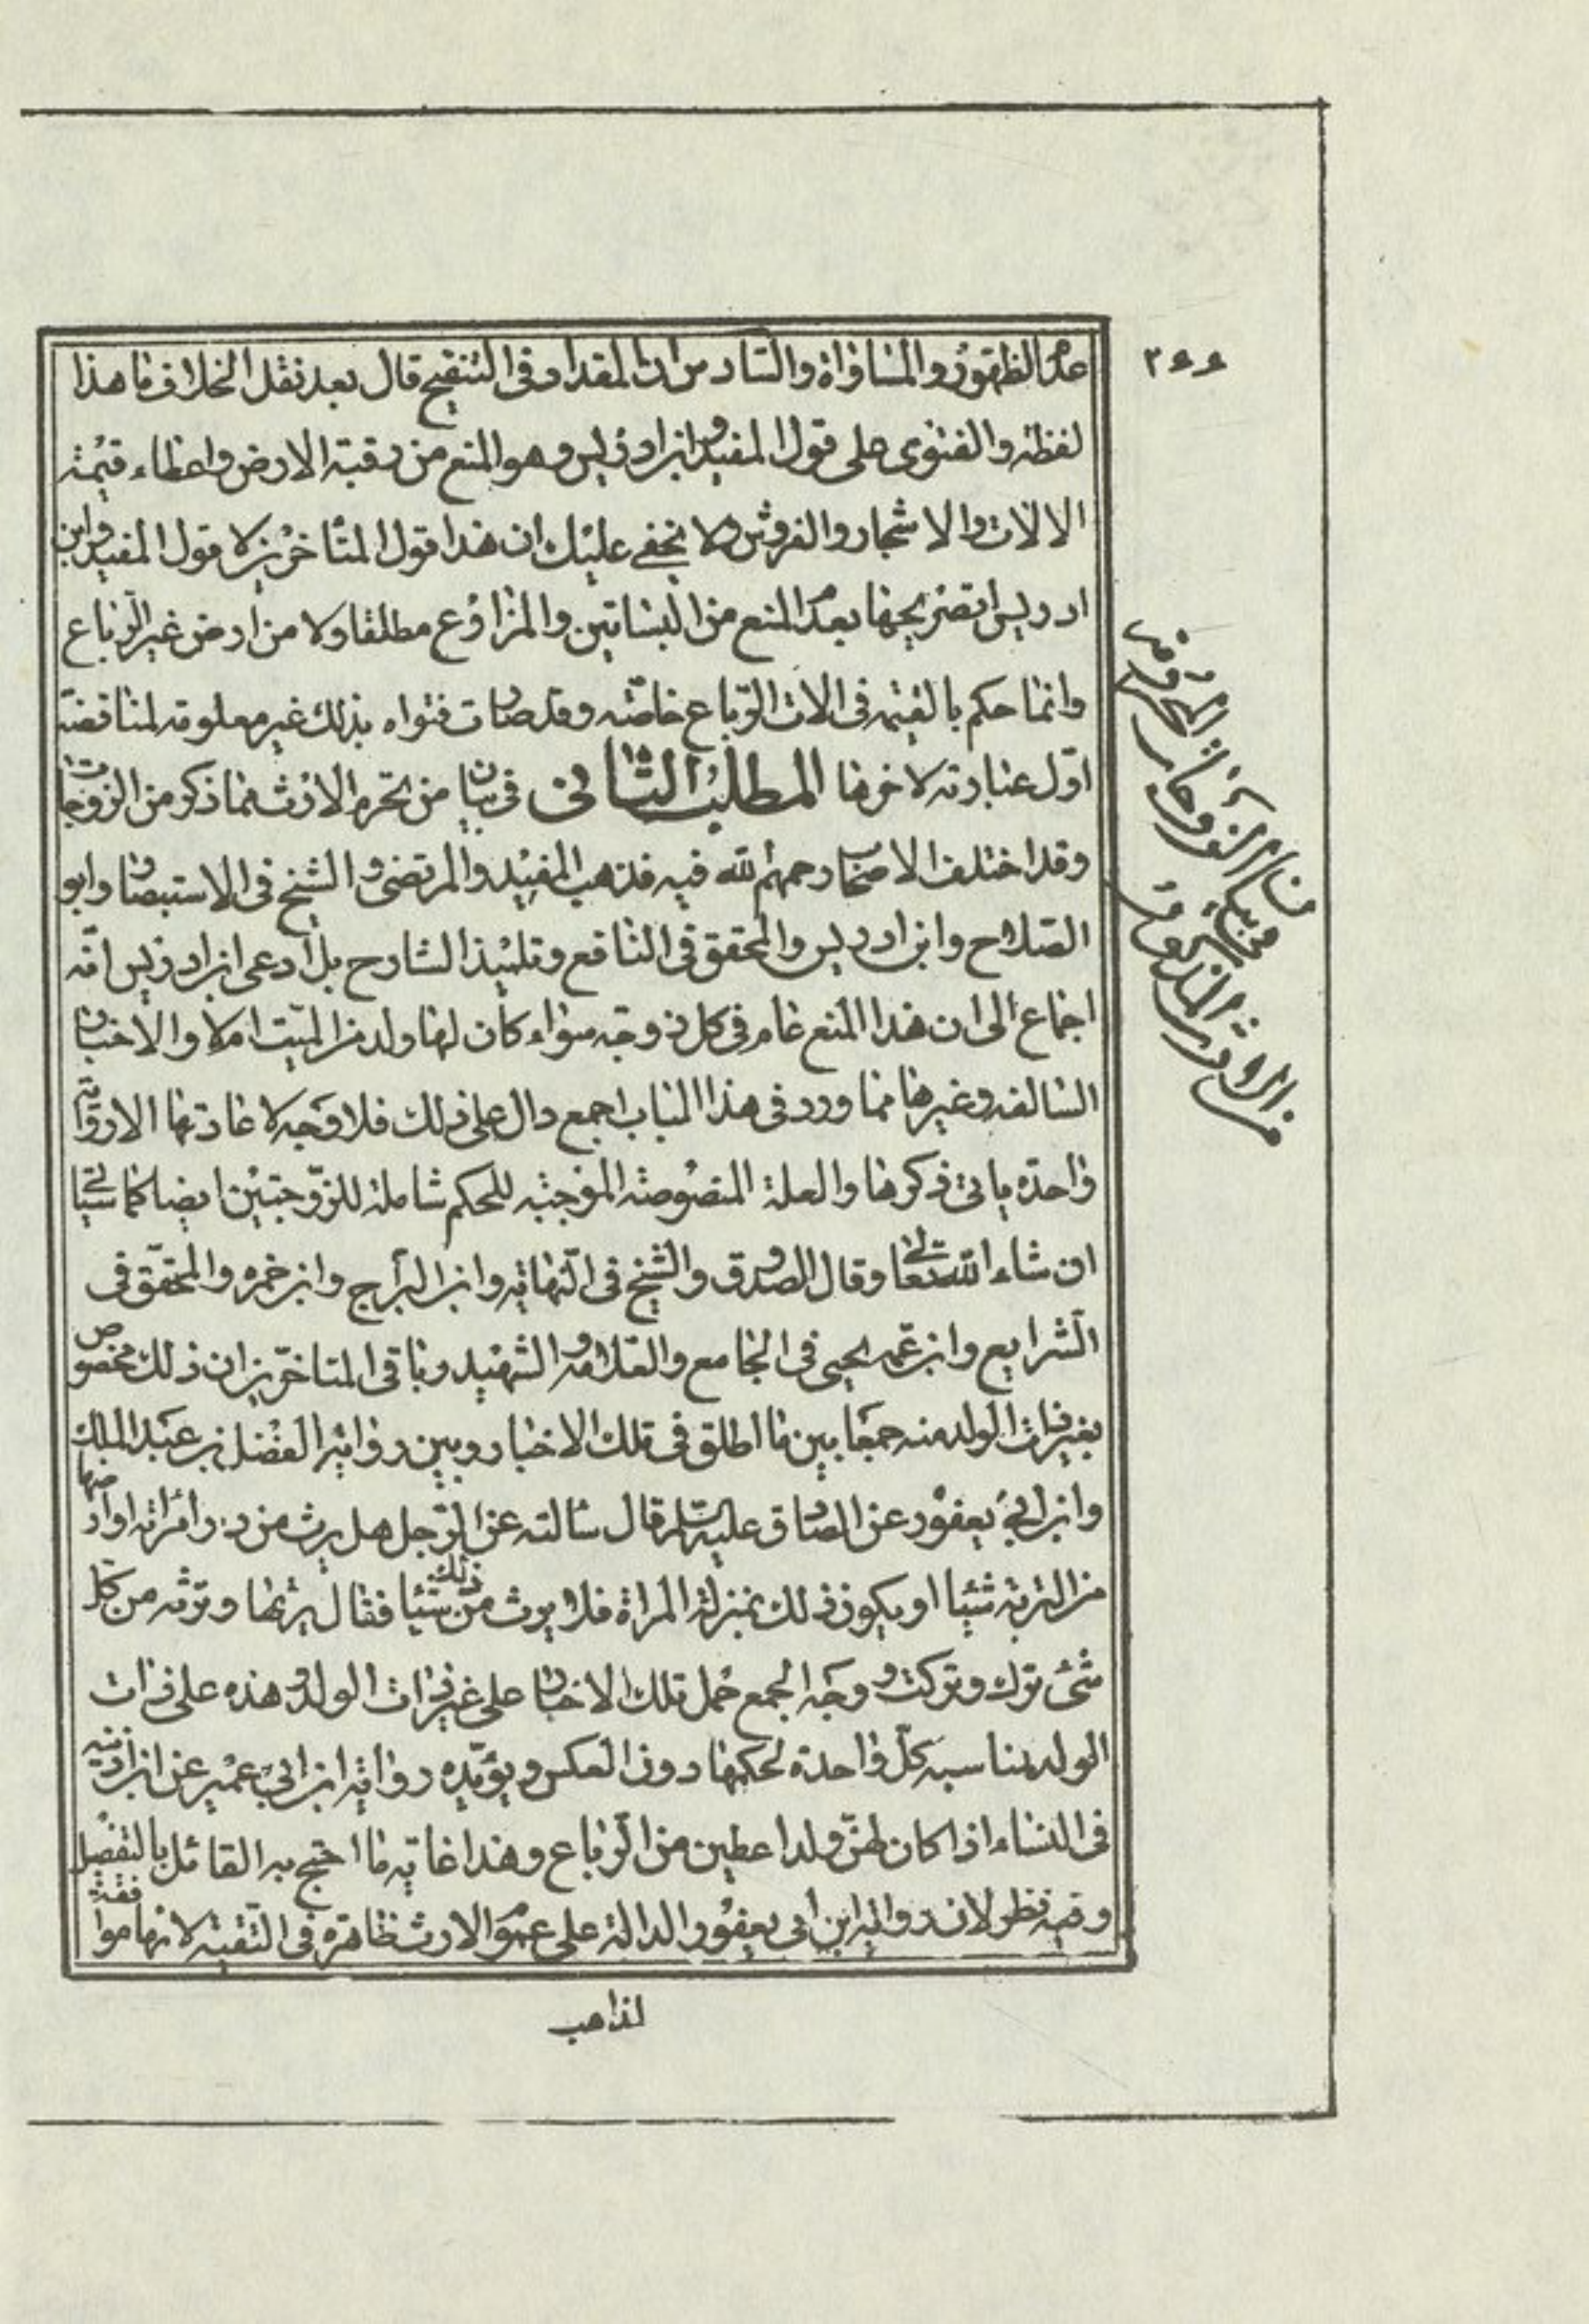 ٢٤٤
عدم الظهور والمساواة والسادس ان المقداد فى التنقيح قال بعد نقل الخلاف ما هذا
لفظه والفتوى على قول المفيد وابن ادريس وهو المنع من رقبة الارض واعطاء قيمة
الالات والاشجار والغروش ولا يخفى عليك ان هذا قول المتاخرين لا قول المفيد وابن
ادريس لتصريحهما بعدم المنع من البساتين والمزارع مطلقا ولا من ارض غير الرباع
وانما حكم بالقيمة فى الات الرباع خاصة وقد صارت فتواه بذلك غير معلومة لمناقضة
اول عبارته لاخرها المطلب الثانى فى بيان من تحرم الارث مما ذكر من الزوجات
وقد اختلف الاصحاب رحمهم الله فيه فذهب المفيد والمرتضى والشيخ فى الاستبصار وابو
الصلاح وابن ادريس والمحقق فى النافع وتلميذ الشارح بل ادعى ابن ادريس انه
اجماع الى ان هذا المنع عام فى كل زوجة سواء كان لها ولد من الميت ام لا والاخبار
السالفة وغيرها مما ورد فى هذا الباب اجمع دال على ذلك فلا وجه لاعادتها الا رواية
واحدة ياتى ذكرها والعلة المنصوصة الموجبة للحكم شاملة للزوجتين ايضا كما سياتى
ان شاء الله تعالى وقال الصدوق والشيخ فى النهاية وابن البراج وابن حمزه والمحقق فى
الشرايع وابن عمه يحيى فى الجامع والعلامة والشهيد وباقى المتاخرين ان ذلك مخصوص
بغير ذات الولد منه جمعا بين ما اطلق فى تلك الاخبار وبين رواية الفضل بن عبد الملك
وابن ابى يعفور عن الصادق عليه السلام قال سالته عن الرجل هل يرث من دار امراته او ارضها
من التربة شيئا او يكون ذلك بمنزلة المراة فلا يرث من ذلك شيئا فقال يرثها وترثه من كل
شئ ترك وتركت ووجه الجمع حمل تلك الاخبار على غير ذات الولد وهذه على ذات
الولد لمناسبة كل واحدة لحكمها دون العكس ويؤيده رواية ابن ابى عمير عن ابن اذينه
فى النساء اذا كان لهن ولد اعطين من الرباع وهذا غاية ما احتج به القائل بالتفصيل
وفيه نظر لان رواية ابن ابى يعفور الدالة على عموم الارث ظاهرة فى التقية لانها موافقة
لذاهب
فى بيان
من الارث المذكورة